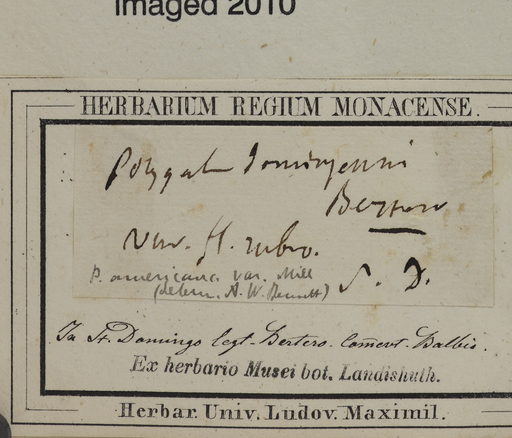 Imaged 2010
HERBARIUM REGIUM MONACENSE.
Polygala domingensis
Bertero
var. fl. rubro.
P. americana var. Mill
(determ. A. W. Bennett) S. D.
In St. Domingo legt. Bertero. comevt. Balbis.
Ex herbario Musei bot. Landishuth.
Herbar. Univ. Ludov. Maximil.